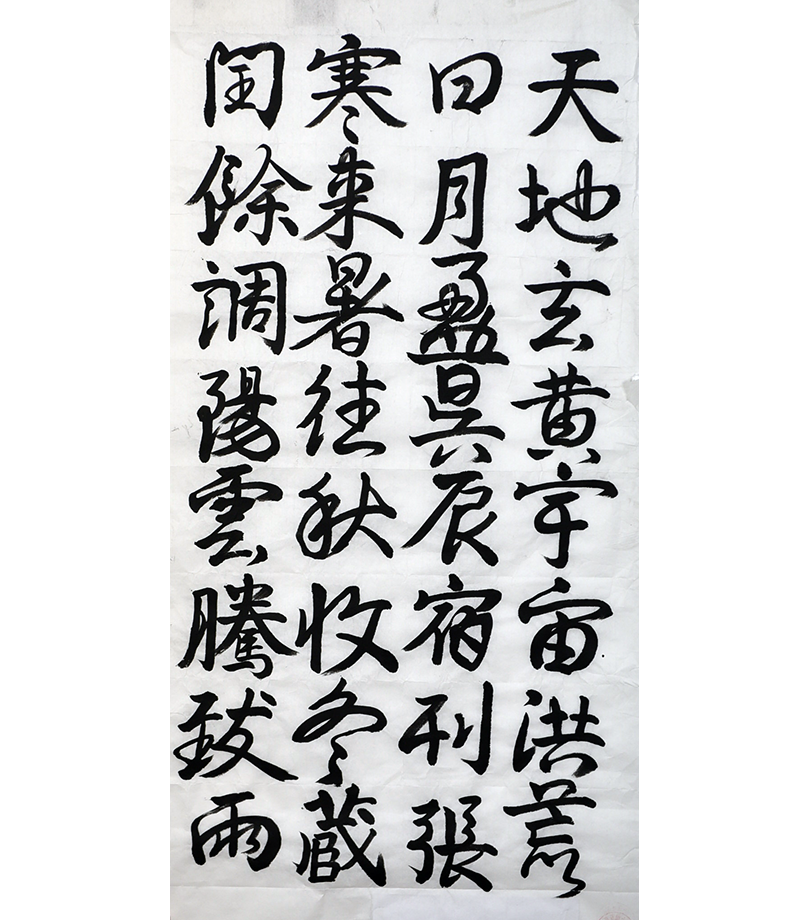 天地玄黄宇宙洪荒
日月盈昃辰宿列張
寒来暑往秋收冬藏
閏餘調陽雲騰致雨